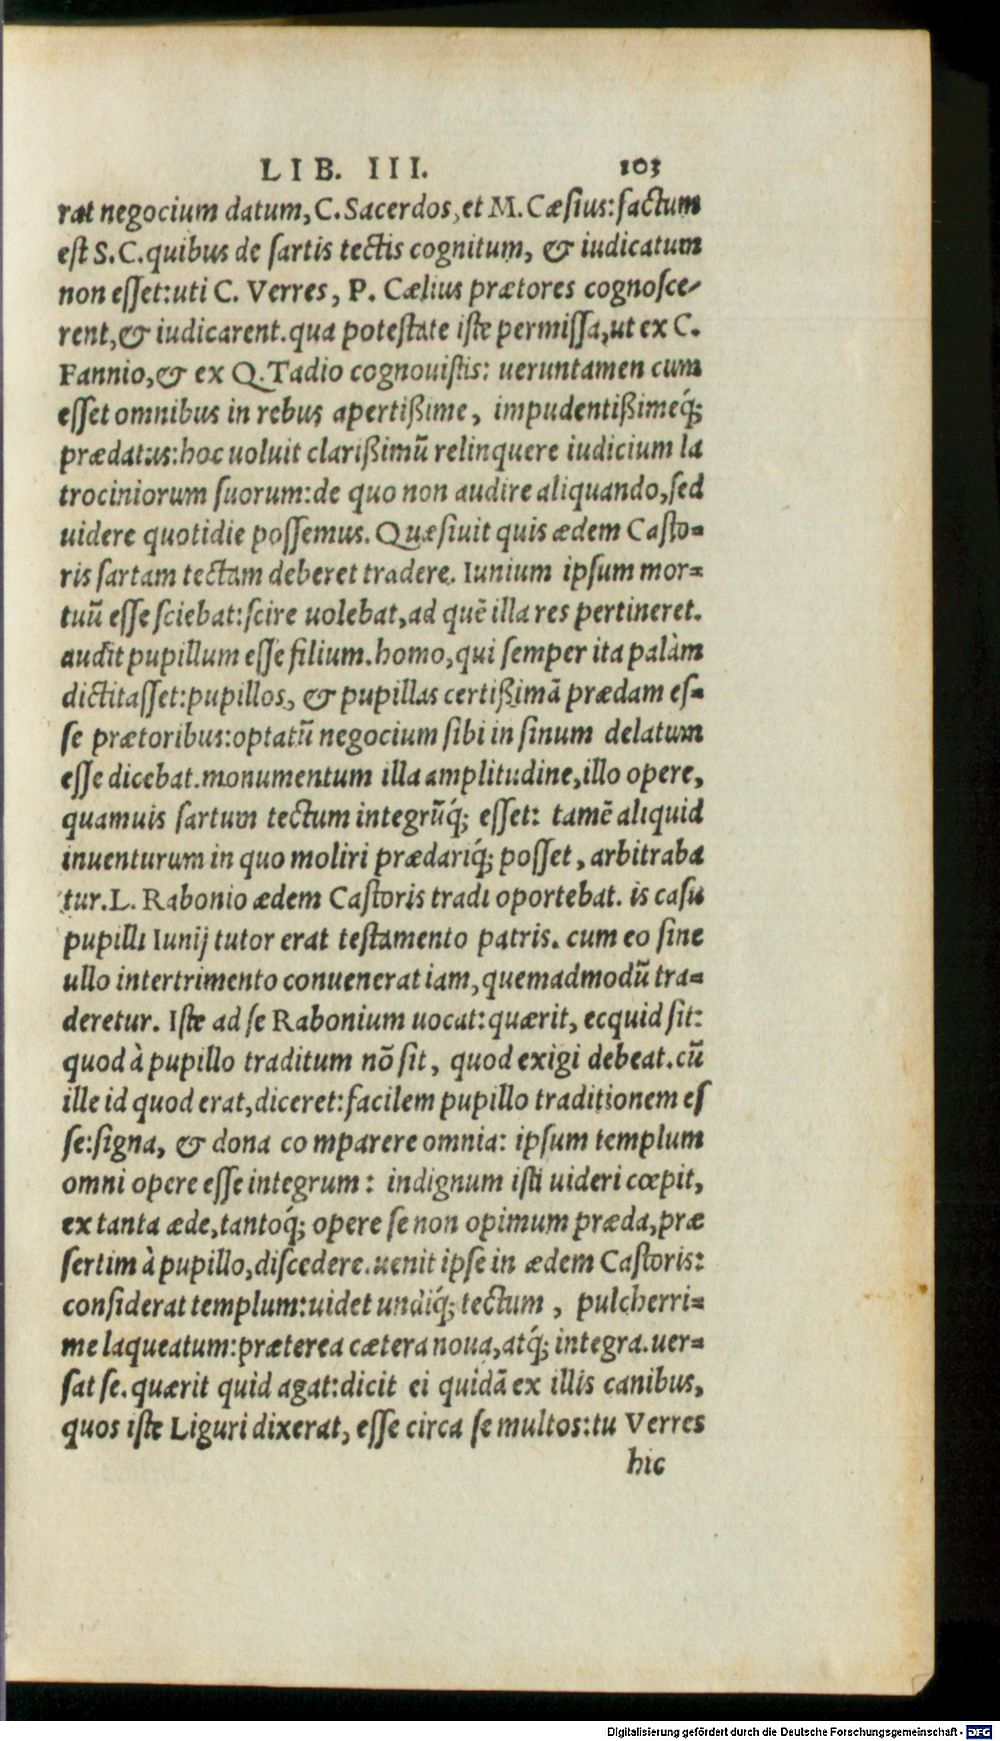 LIB. III. 103
rat negocium datum, C. Sacerdos, et M. Cæſius: factum
eſt S. C. quibus de ſartis tectis cognitum, & iudicatum
non eſſet: uti C. Verres, P. Cælius prætores cognoſce-
rent, & iudicarent. qua poteſtate iſte permiſſa, ut ex C.
Fannio, & ex Q. Tadio cognouiſtis: ueruntamen cum
eſſet omnibus in rebus apertißime, impudentißimeq́;
prædatus: hoc uoluit clarißimũ relinquere iudicium la
trociniorum ſuorum: de quo non audire aliquando, ſed
uidere quotidie poſſemus. Quæſiuit quis ædem Caſto=
ris ſartam tectam deberet tradere. Iunium ipſum mor=
tuũ eſſe ſciebat: ſcire uolebat, ad quẽ illa res pertineret.
audit pupillum eſſe filium. homo, qui ſemper ita palàm
dictitaſſet: pupillos, & pupillas certißimã prædam eſ=
ſe prætoribus: optatũ negocium ſibi in ſinum delatum
eſſe dicebat. monumentum illa amplitudine, illo opere,
quamuis ſartum tectum integrũq́; eſſet: tamẽ aliquid
inuenturum in quo moliri prædariq́; poſſet, arbitraba
tur. L. Rabonio ædem Caſtoris tradi oportebat. is caſu
pupilli Iunij tutor erat teſtamento patris. cum eo ſine
ullo intertrimento conuenerat iam, quemadmodũ tra=
deretur. Iſte ad ſe Rabonium uocat: quærit, ecquid ſit:
quod à pupillo traditum nõ ſit, quod exigi debeat. cũ
ille id quod erat, diceret: facilem pupillo traditionem eſ
ſe: ſigna, & dona co mparere omnia: ipſum templum
omni opere eſſe integrum: indignum iſti uideri cœpit,
ex tanta æde, tantoq́; opere ſe non opimum præda, præ
ſertim à pupillo, diſcedere. uenit ipſe in ædem Caſtoris:
conſiderat templum: uidet undiq́; tectum, pulcherri=
me laqueatum: præterea cætera noua, atq́; integra. uer=
ſat ſe. quærit quid agat: dicit ei quidã ex illis canibus,
quos iſte Liguri dixerat, eſſe circa ſe multos: tu Verres
hic
Digitalisierung gefördert durch die Deutsche Forschungsgemeinschaft - DFG